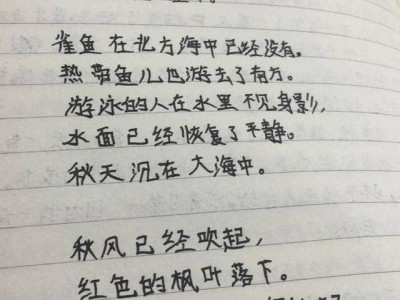 雀鱼在北方海中已经没有。
热带鱼儿也游去了南方。
游泳的人在水里不见身影，
水面已经恢复了平静。
秋天沉在大海中。
秋风已经吹起，
红色的枫叶落下。